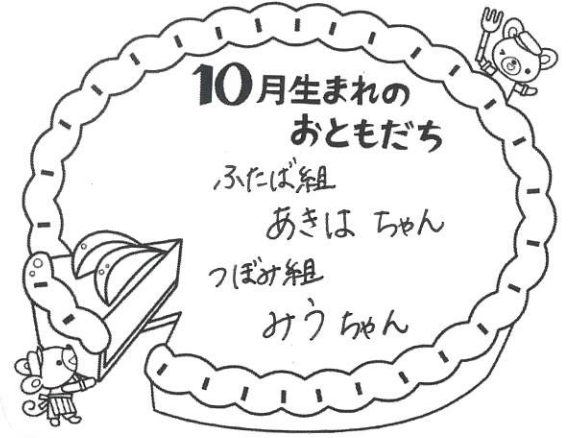 10月生まれの
おともだち
ふたば組
あきは ちゃん
つぼみ組
みう ちゃん